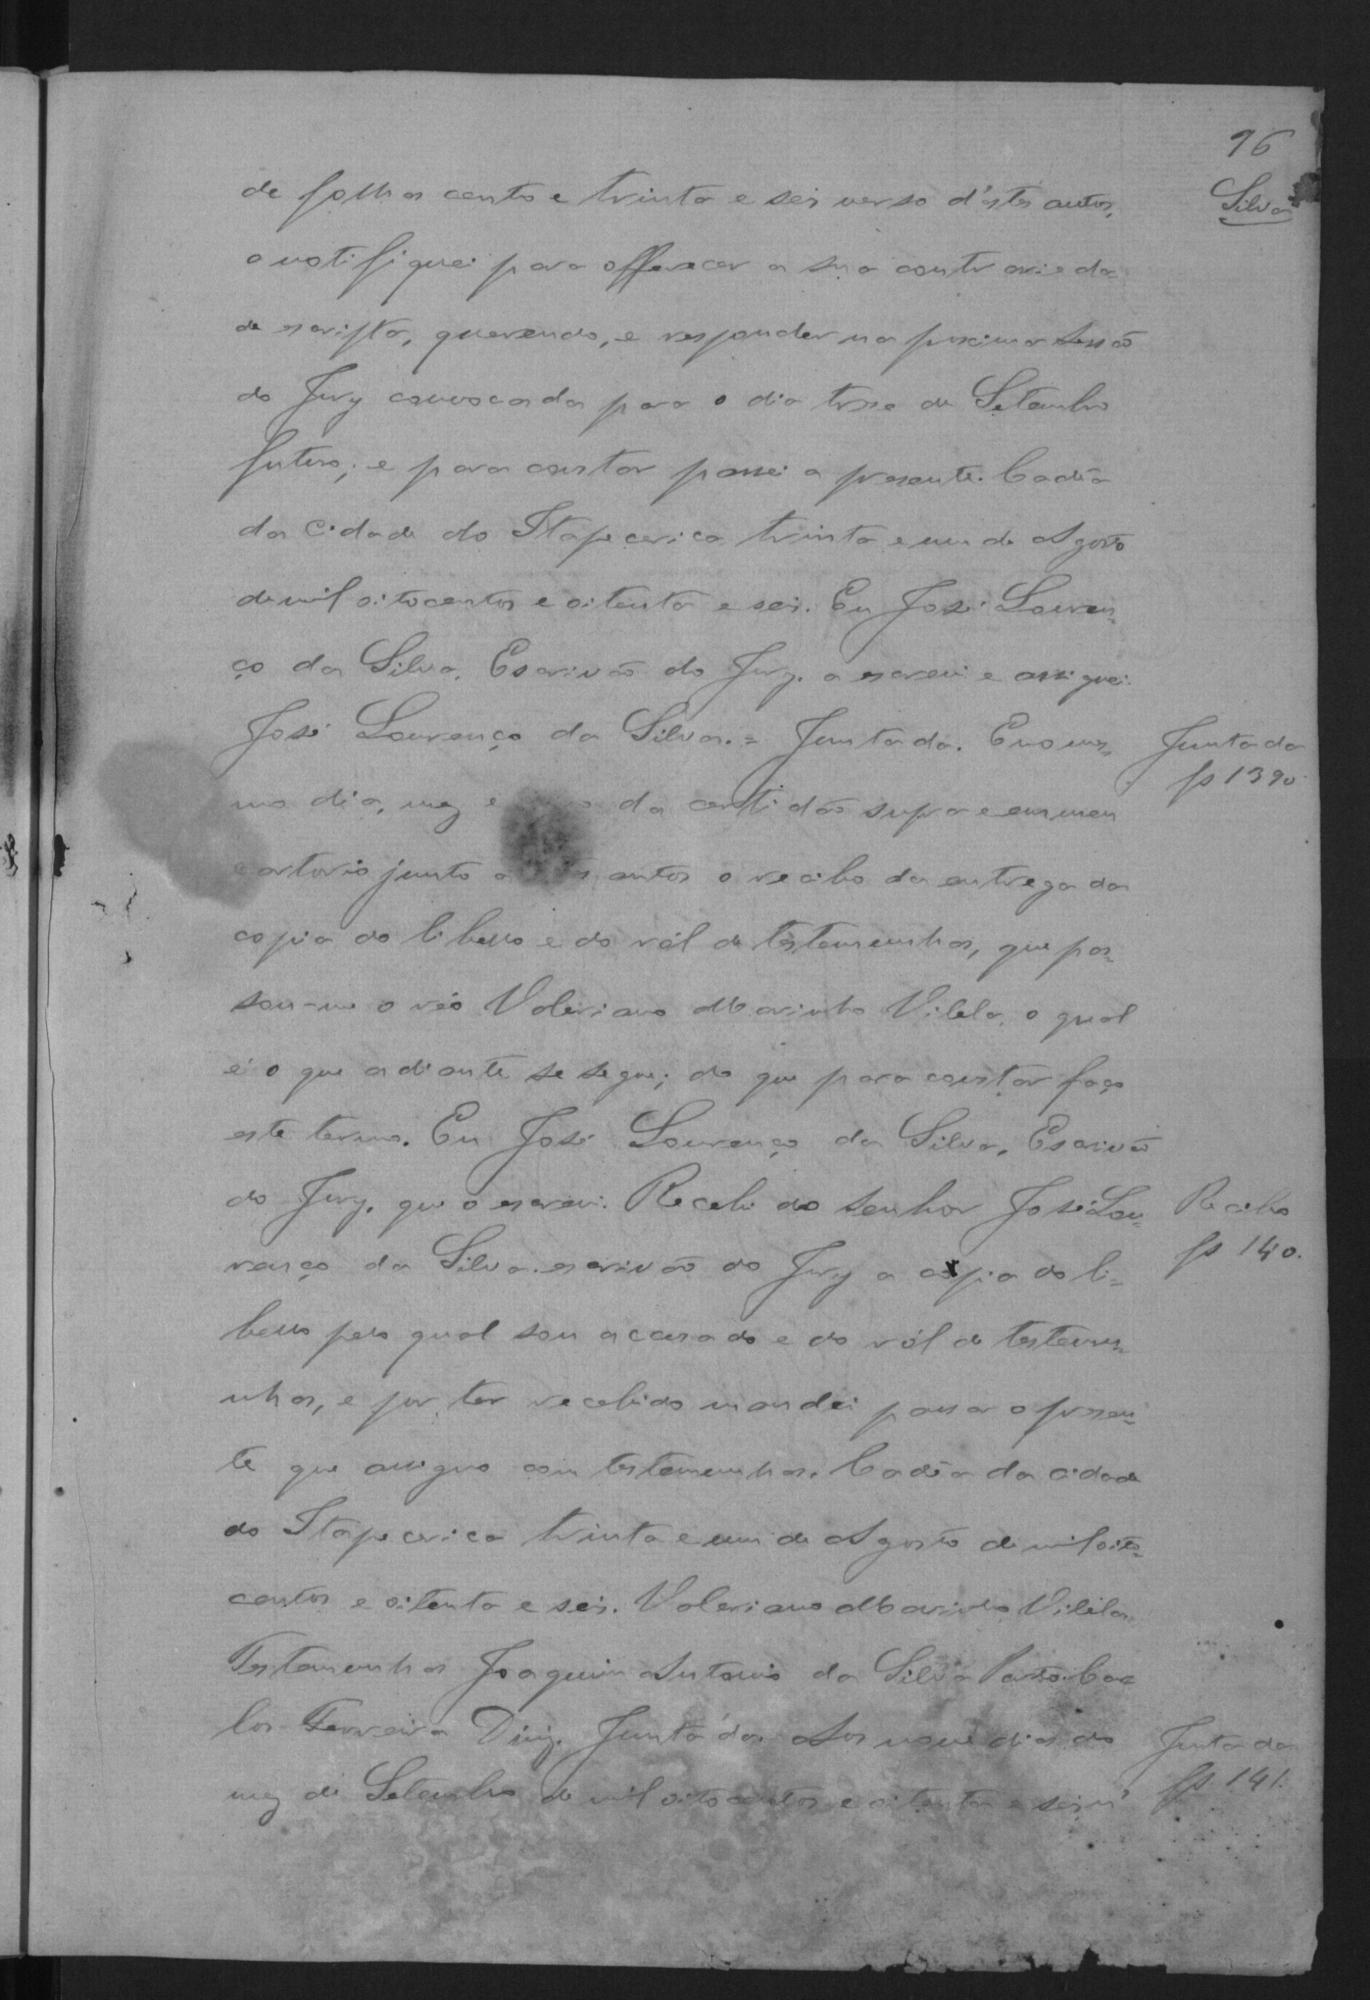 96
Silva
de folhas cento e trinta e seis verso d'estes autos,
o notifiquei para offerecer a sua contrarieda-
de escripta, querendo, e responder na proxima sessão
do Jury convocada para o dia treze de Setembro
futuro; e para constar passei a presente. Cadêa
da Cidade do Itapecerica trinta e um de Agosto
de mil oitocentos e oitenta e seis. Eu José Louren-
ço da Silva, Escrivão do Jury, a escrevi e assignei.
José Lourenço da Silva. = Juntada. E no mes-
Juntada
fs 139v.
mo dia, mez e da certidão supra e em meu
cartorio junto a autos o recibo da entrega da
copia do libello e do ról de testemunhas, que pas-
sou-me o réo Valeriano Marinho Vilela, o qual
é o que adiante se segue; do que para constar faço
este termo. Eu José Lourenço da Silva, Escrivão
do Jury, que o escrevi. Recebi do Senhor José Lou-
Recibo
fs 140.
renço da Silva escrivão do Jury a copia do li-
bello pelo qual sou accusado e do ról de testemu-
nhas, e por ter recebido mandei passar o presen-
te que assigno com testemunhas. Cadêa da cidade
do Itapecerica trinta e um de Agosto de mil oito-
centos e oitenta e seis. Valeriano Marinho Vilela.
Testemunhas Joaquim Antonio da Silva Car-
los Ferreira Diniz. Juntada. Aos nove dias do
Juntada
fs 141.
mez de Setembro de mil oitocentos e oitenta e seis